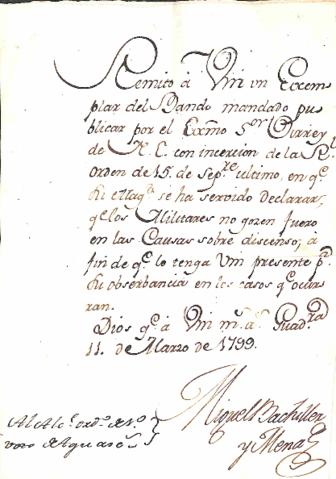 Remito à Vm un Exem
plar del Bando mandado pu
blicar por el Exmo Sor Virrey
de N. E. con incercion de la Rl
orden de 15. de Sepre ultimo, en qe
Su Magd se ha servido declarar,
qe los Militares no gozen fuero
en las Causas sobre discenso; à
fin de qe lo tenga Vm presente pa
su obserbancia en los casos qe ocur
ran.
Dios ge à Vm ms as Guadra
11. de Marzo de 1799.
Miguel Bachiller
y Mena
Al Alce ordo de 1o
voto de Aguas